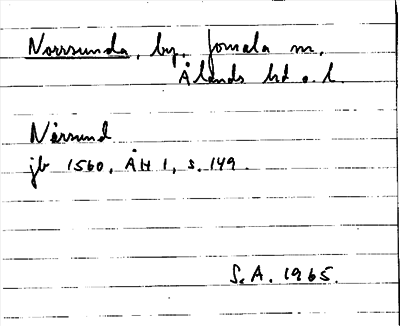 Norrsunda, by, Jomala sn,
Ålands hd o. l.
Nårsund
jb 1560, ÅH 1, s. 149.
S.A. 1965.